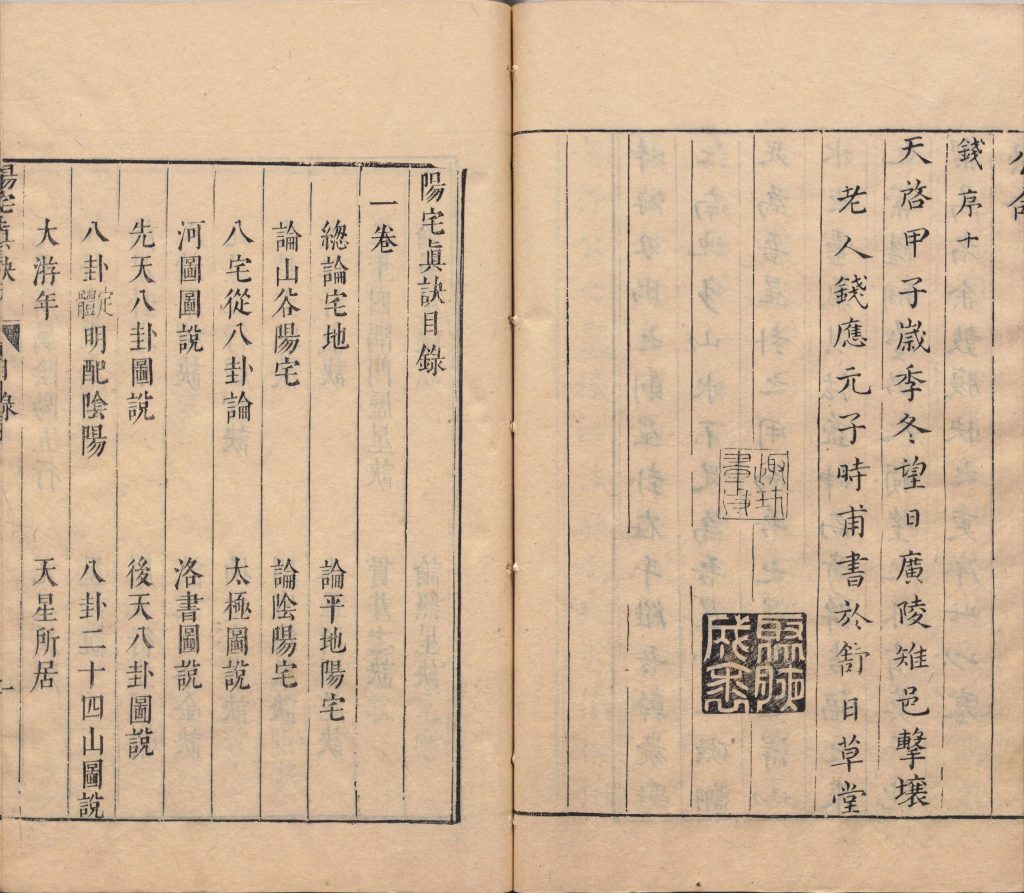 錢序十
天啓甲子嵗季冬望日廣陵雉邑擊壤
老人錢應元子時甫書於舒日草堂
陽宅眞訣目錄
一卷
總論宅地 論平地陽宅
論山谷陽宅 論陰陽宅
八宅從八卦論 太極圖說
河圖圖說 洛書圖說
先天八卦圖說 後天八卦圖說
八卦定體明配陰陽 八卦二十四山圖說
大游年 天星所居